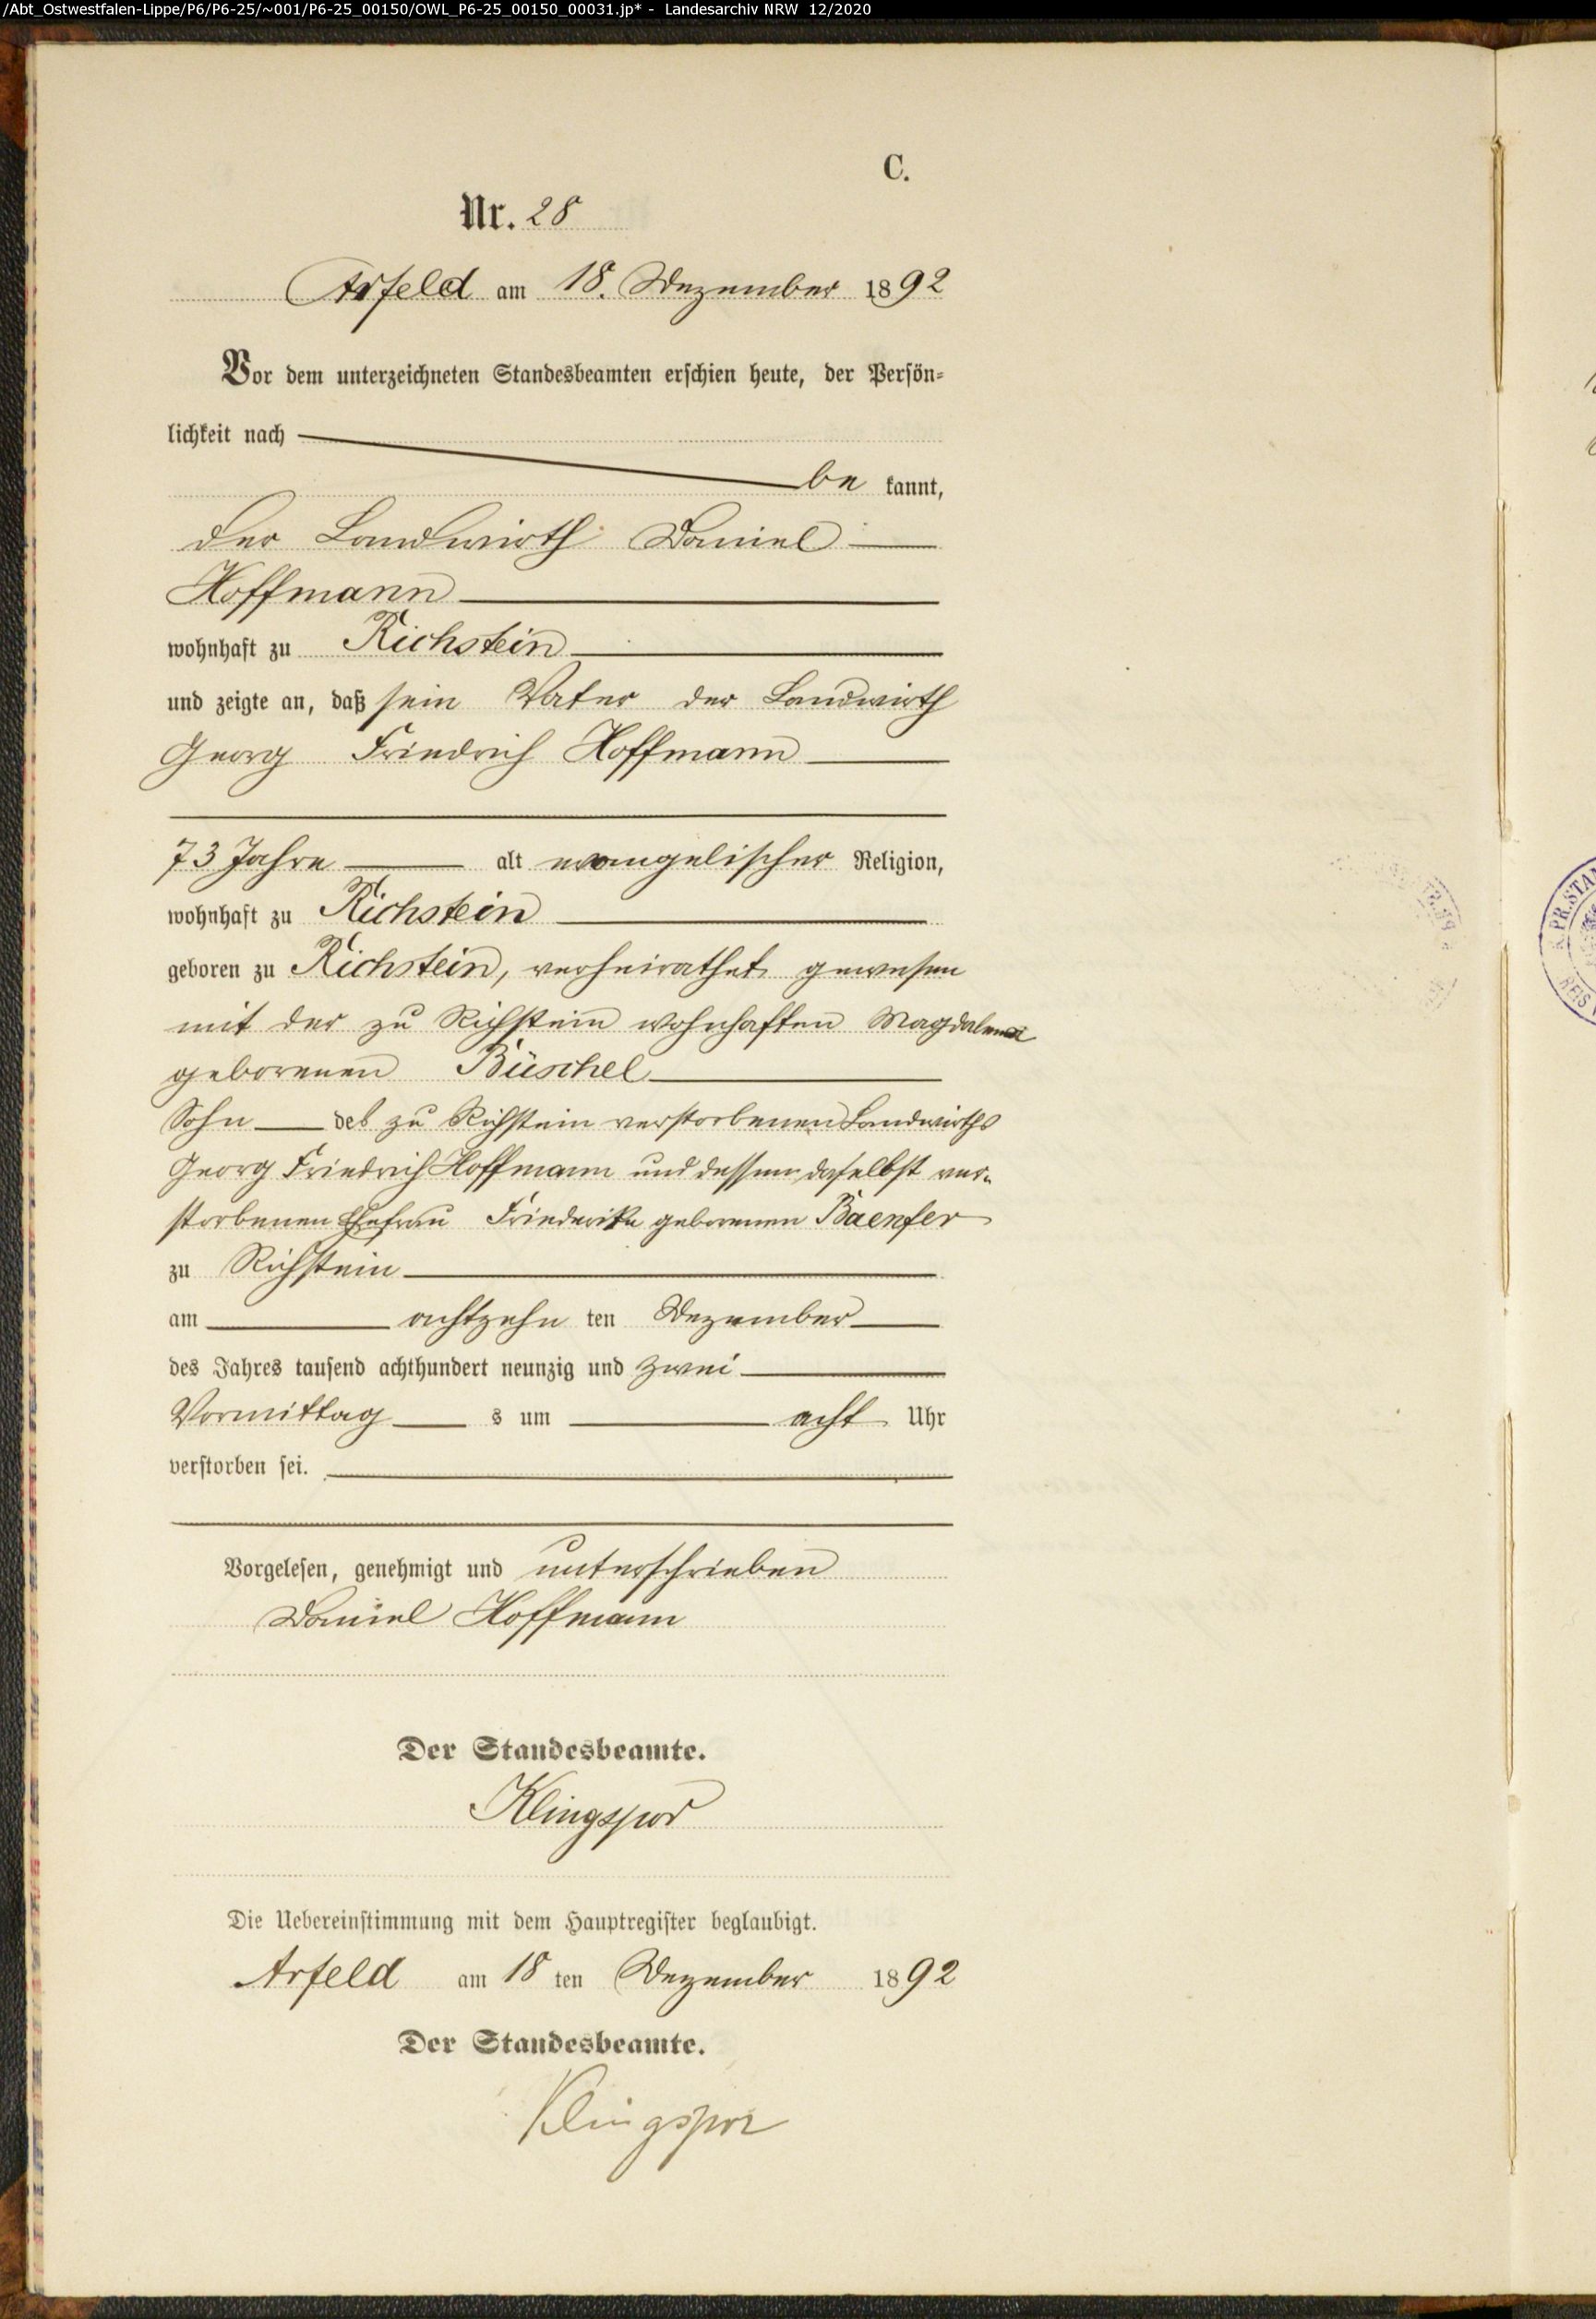 /Abt_Ostwestfalen-Lippe/P6/P6-25/~001/P6-25_00150/OWL_P6-25_00150_00031.jp* - Landesarchiv NRW 12/2020
C.
Nr. 28
Arfeld am 18. Dezember 1892
Vor dem unterzeichneten Standesbeamten erschien heute, der Persön-
lichkeit nach
be kannt,
der Landwirth Daniel
Hoffmann
wohnhaft zu Richstein
und zeigte an, daß sein Vater der Landwirth
Georg Friedrich Hoffmann
73 Jahre alt evangelischer Religion,
wohnhaft zu Richstein
geboren zu Richstein, verheirathet gewesen
mit der zu Richstein wohnhaften Magdalena
geborenen Büschel
Sohn des zu Richstein verstorbenen Landwirths
Georg Friedrich Hoffmann und dessen daselbst ver-
storbenen Ehefrau Friederike geborenen Baenfer
zu Richstein
am achtzehn ten Dezember
des Jahres tausend achthundert neunzig und zwei
Vormittag s um acht Uhr
verstorben sei.
Vorgelesen, genehmigt und unterschrieben
Daniel Hoffmann
Der Standesbeamte.
Klingspor
Die Uebereinstimmung mit dem Hauptregister beglaubigt.
Arfeld am 18 ten Dezember 1892
Der Standesbeamte.
Klingspor